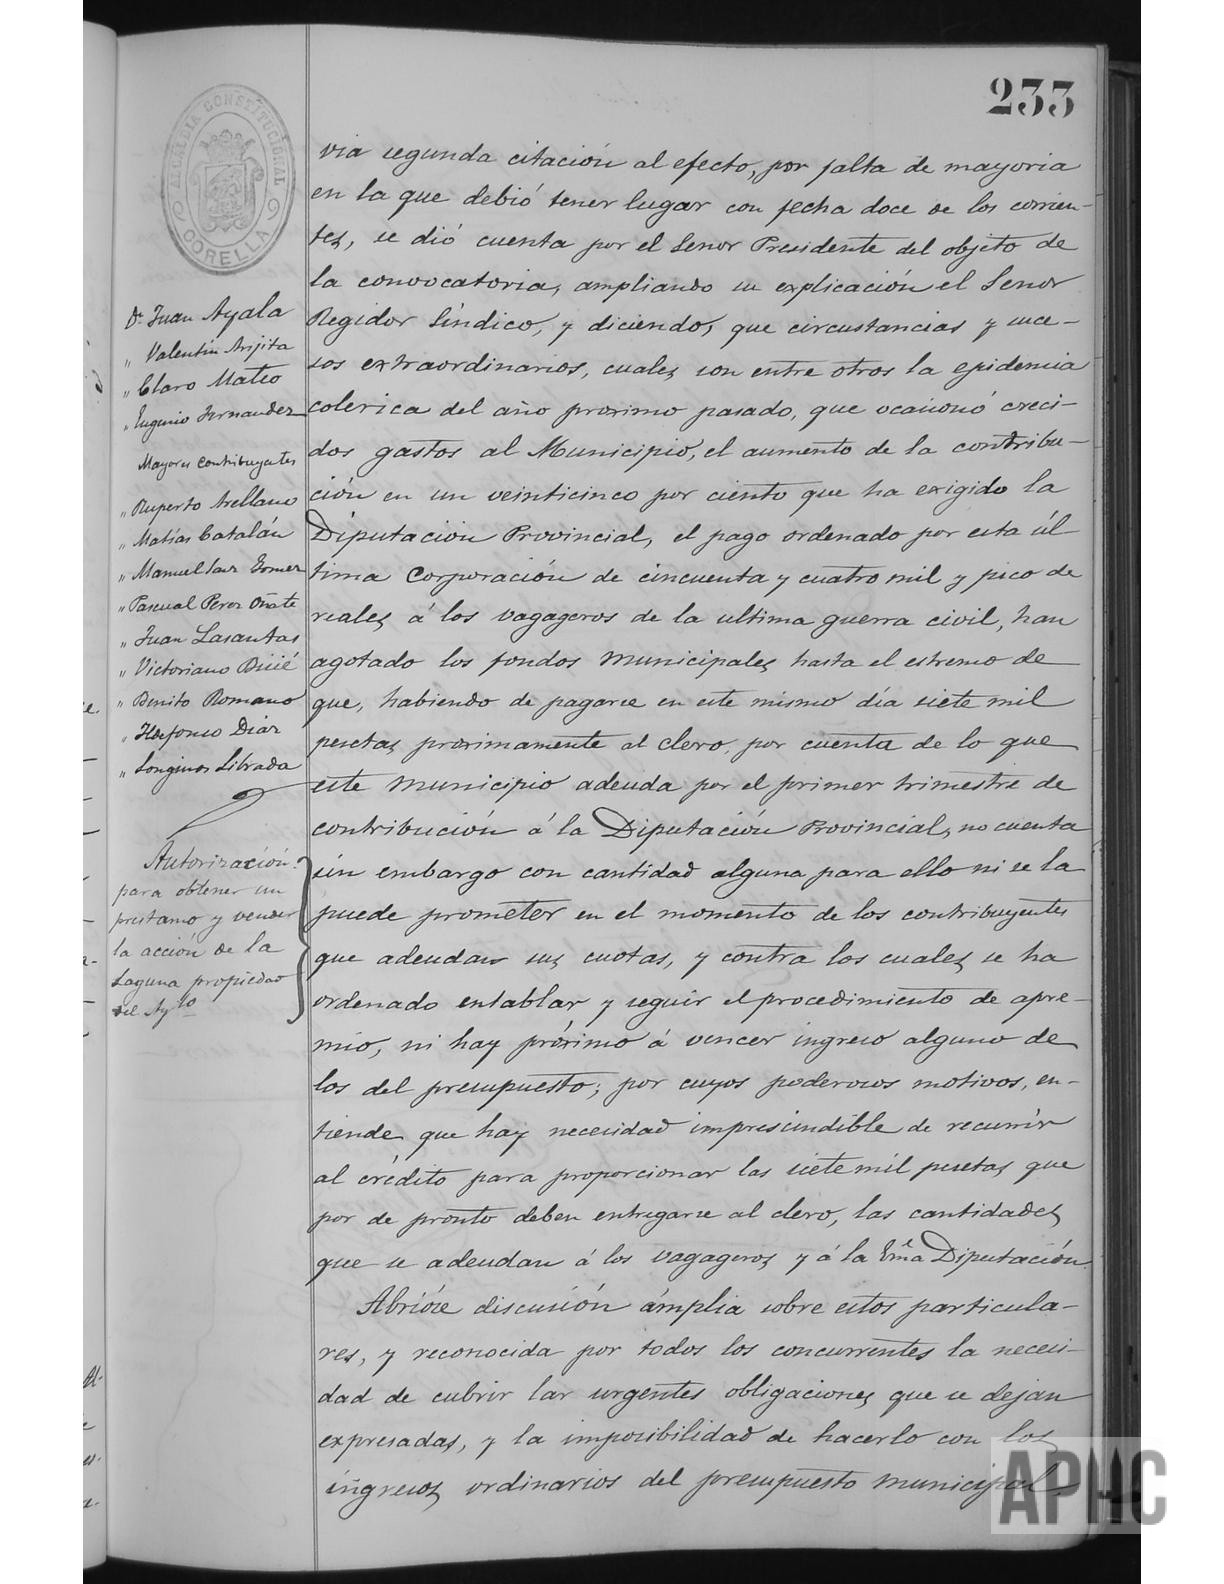 233
ALCALDIA CONSTITUCIONAL
CORELLA
Dn. Juan Ayala
" Valentín Arijita
" Claro Mateo
" Eugenio Fernandez
Mayores Contribuyentes
" Ruperto Arellano
" Matías Catalán
" Manuel Sanz Gomez
" Pascual Perez Oñate
" Juan Lasantas
" Victoriano
" Benito Romano
" Ildefonso Diáz
" Longinos Librada
Autorización
para obtener un
prestamo y vender
la acción de la
Laguna propiedad
del Ayto
via segunda citación al efecto, por falta de mayoria
en la que debió tener lugar con fecha doce de los corrien-
tes, se dió cuenta por el Senor Presidente del objeto de
la convocatoria, ampliando su explicación el Senor
Regidor Síndico, y diciendo, que circustancias y suce-
sos extraordinarios, cuales son entre otros la epidemia
colerica del año proximo pasado, que ocasionó creci-
dos gastos al Municipio, el aumento de la contribu-
ción en un veinticinco por ciento que ha exigido la
Diputación Provincial, el pago ordenado por esta úl-
tima Corporación de cincuenta y cuatro mil y pico de
reales á los vagageros de la ultima guerra civil, han
agotado los fondos municipales hasta el estremo de
que, habiendo de pagarse en este mismo día siete mil
pesetas proximamente al clero, por cuenta de lo que
este Municipio adeuda por el primer trimestre de
contribución á la Diputación Provincial, no cuenta
sin embargo con cantidad alguna para ello ni se la
puede prometer en el momento de los contribuyentes
que adeudan sus cuotas, y contra los cuales se ha
ordenado entablar y seguir el procedimiento de apre-
mio, ni hay próximo á vencer ingreso alguno de
los del presupuesto; por cuyos poderosos motivos, en-
tiende que hay necesidad imprescindible de recurrir
al crédito para proporcionar las siete mil pesetas que
por de pronto deben entregarse al clero, las cantidades
que se adeudan á los vagageros y á la Exma Diputación.
Abrióse discusión ámplia sobre estos particula-
res, y reconocida por todos los concurrentes la necesi-
dad de cubrir las urgentes obligaciones que se dejan
expresadas, y la imposibilidad de hacerlo con los
ingresos ordinarios del presupuesto municipal
APHC